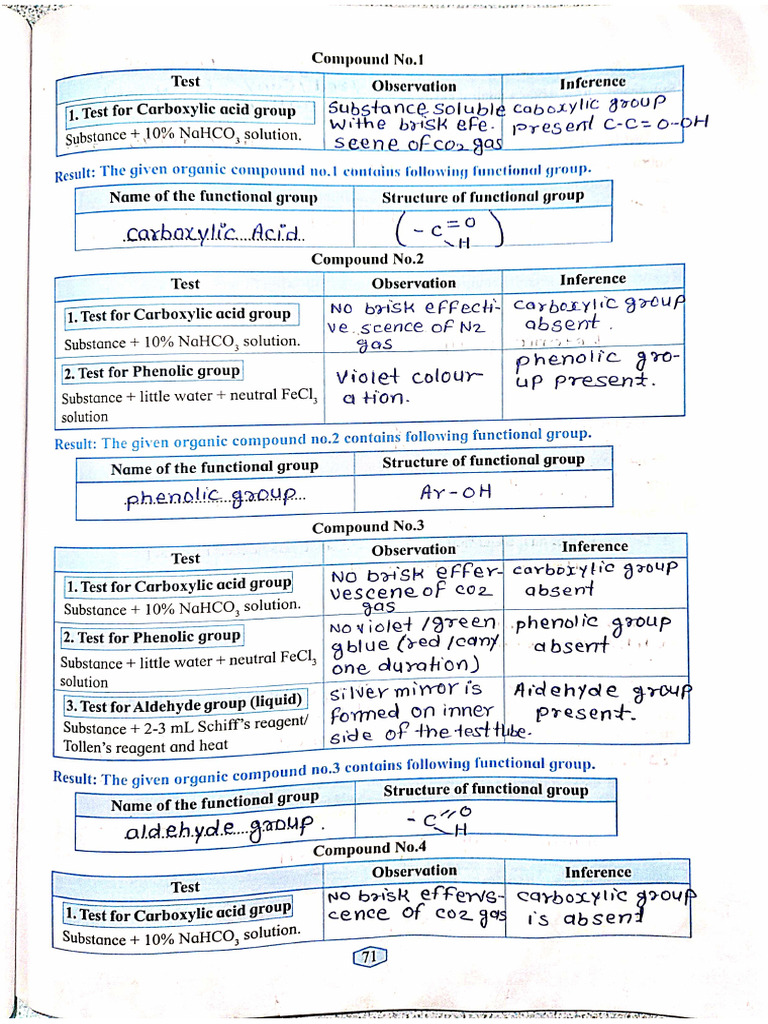 Compound No.1
Test Observation Inference
1. Test for Carboxylic acid group
Substance + 10% NaHCO3 solution.
Substance soluble
withe brisk efe.
scene of co2 gas
caboxylic group
present C-C=O-OH
Result: The given organic compound no.1 contains following functional group.
Name of the functional group Structure of functional group
carboxylic Acid (-C=O H)
Compound No.2
Test Observation Inference
1. Test for Carboxylic acid group
Substance + 10% NaHCO3 solution.
No brisk effecti-
ve scence of N2
gas
carboxylic group
absent.
2. Test for Phenolic group
Substance + little water + neutral FeCl3
solution
Violet colour
ation.
phenolic gro-
up present.
Result: The given organic compound no.2 contains following functional group.
Name of the functional group Structure of functional group
phenolic group Ar-OH
Compound No.3
Test Observation Inference
1. Test for Carboxylic acid group
Substance + 10% NaHCO3 solution.
No brisk effer-
vescene of co2
gas
carboxylic group
absent
2. Test for Phenolic group
Substance + little water + neutral FeCl3
solution
No violet/green
gblue (red/cany
one duration)
phenolic group
absent
3. Test for Aldehyde group (liquid)
Substance + 2-3 mL Schiff's reagent/
Tollen's reagent and heat
silver mirror is
formed on inner
side of the test tube.
Aidehyde group
present.
Result: The given organic compound no.3 contains following functional group.
Name of the functional group Structure of functional group
aldehyde group. -C=O H
Compound No.4
Test Observation Inference
1. Test for Carboxylic acid group
Substance + 10% NaHCO3 solution.
No brisk effervs-
cence of co2 gas
carboxylic group
is absent
71